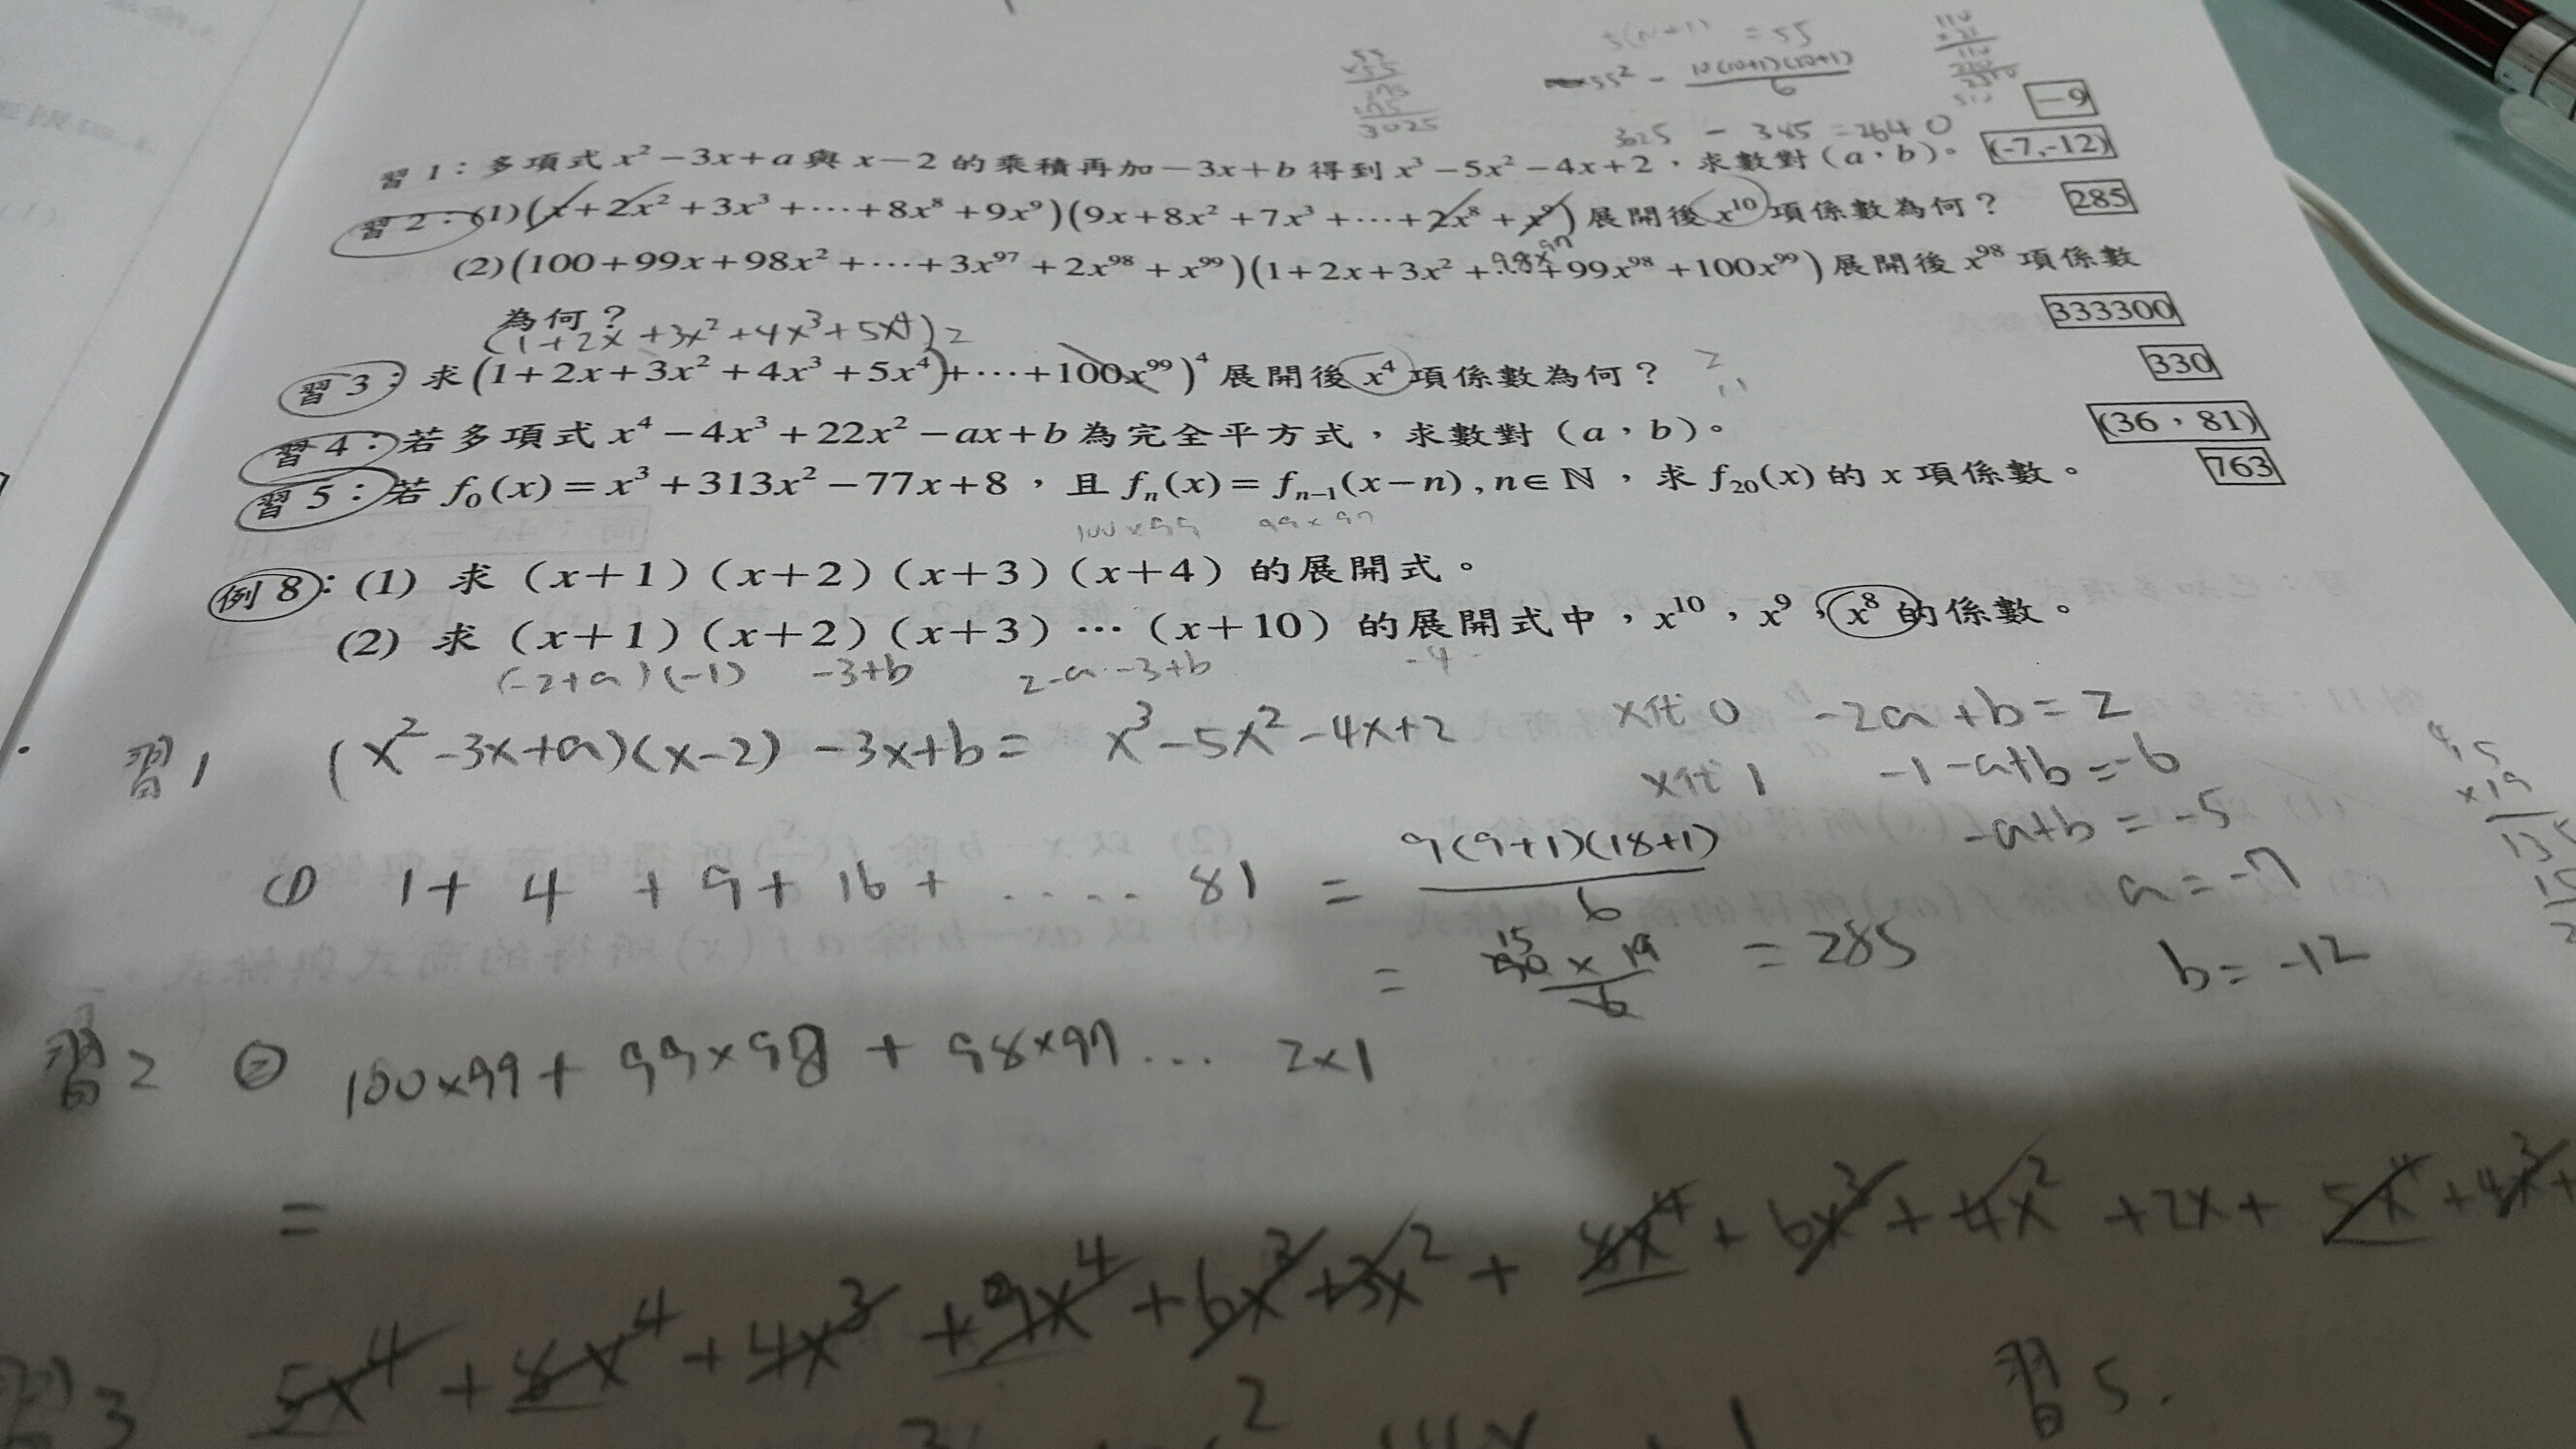 5(n+1) = 55
55² - 10(10+1)(20+1)/6
3025
3025 - 385 = 2640
-9
習1：多項式 x²-3x+a 與 x-2 的乘積再加 -3x+b 得到 x³-5x²-4x+2，求數對（a，b）。 (-7,-12)
習2：(1)(x+2x²+3x³+⋯+8x⁸+9x⁹)(9x+8x²+7x³+⋯+2x⁸+x⁹) 展開後 x¹⁰ 項係數為何？ 285
98x⁹⁷
(2)(100+99x+98x²+⋯+3x⁹⁷+2x⁹⁸+x⁹⁹)(1+2x+3x²+⋯+99x⁹⁸+100x⁹⁹) 展開後 x⁹⁸ 項係數
為何？ 333300
(1+2x+3x²+4x³+5x⁴)2
習3：求 (1+2x+3x²+4x³+5x⁴+⋯+100x⁹⁹)⁴ 展開後 x⁴ 項係數為何？ 330
習4：若多項式 x⁴-4x³+22x²-ax+b 為完全平方式，求數對（a，b）。 (36，81)
習5：若 f₀(x)=x³+313x²-77x+8，且 fₙ(x)=fₙ₋₁(x-n),n∈ℕ，求 f₂₀(x) 的 x 項係數。 763
100×99 99×97
例8：(1) 求（x+1）（x+2）（x+3）（x+4）的展開式。
(2) 求（x+1）（x+2）（x+3）⋯（x+10）的展開式中，x¹⁰，x⁹，x⁸ 的係數。
(-2+a)(-1) -3+b 2-a-3+b -4
習1 (x²-3x+a)(x-2)-3x+b= x³-5x²-4x+2
x代0 -2a+b=2
x代1 -1-a+b=-6
-a+b=-5
a=-7
b=-12
① 1+4+9+16+.....81 = 9(9+1)(18+1)/6
= 15 90×19/6 = 285
習2 ② 100×99+99×98+98×97... 2×1
=
習3 5x⁴+8x⁴+4x³+9x⁴+6x³+3x²+8x⁴+6x³+4x²+2x+5x⁴+4x³+
習5.